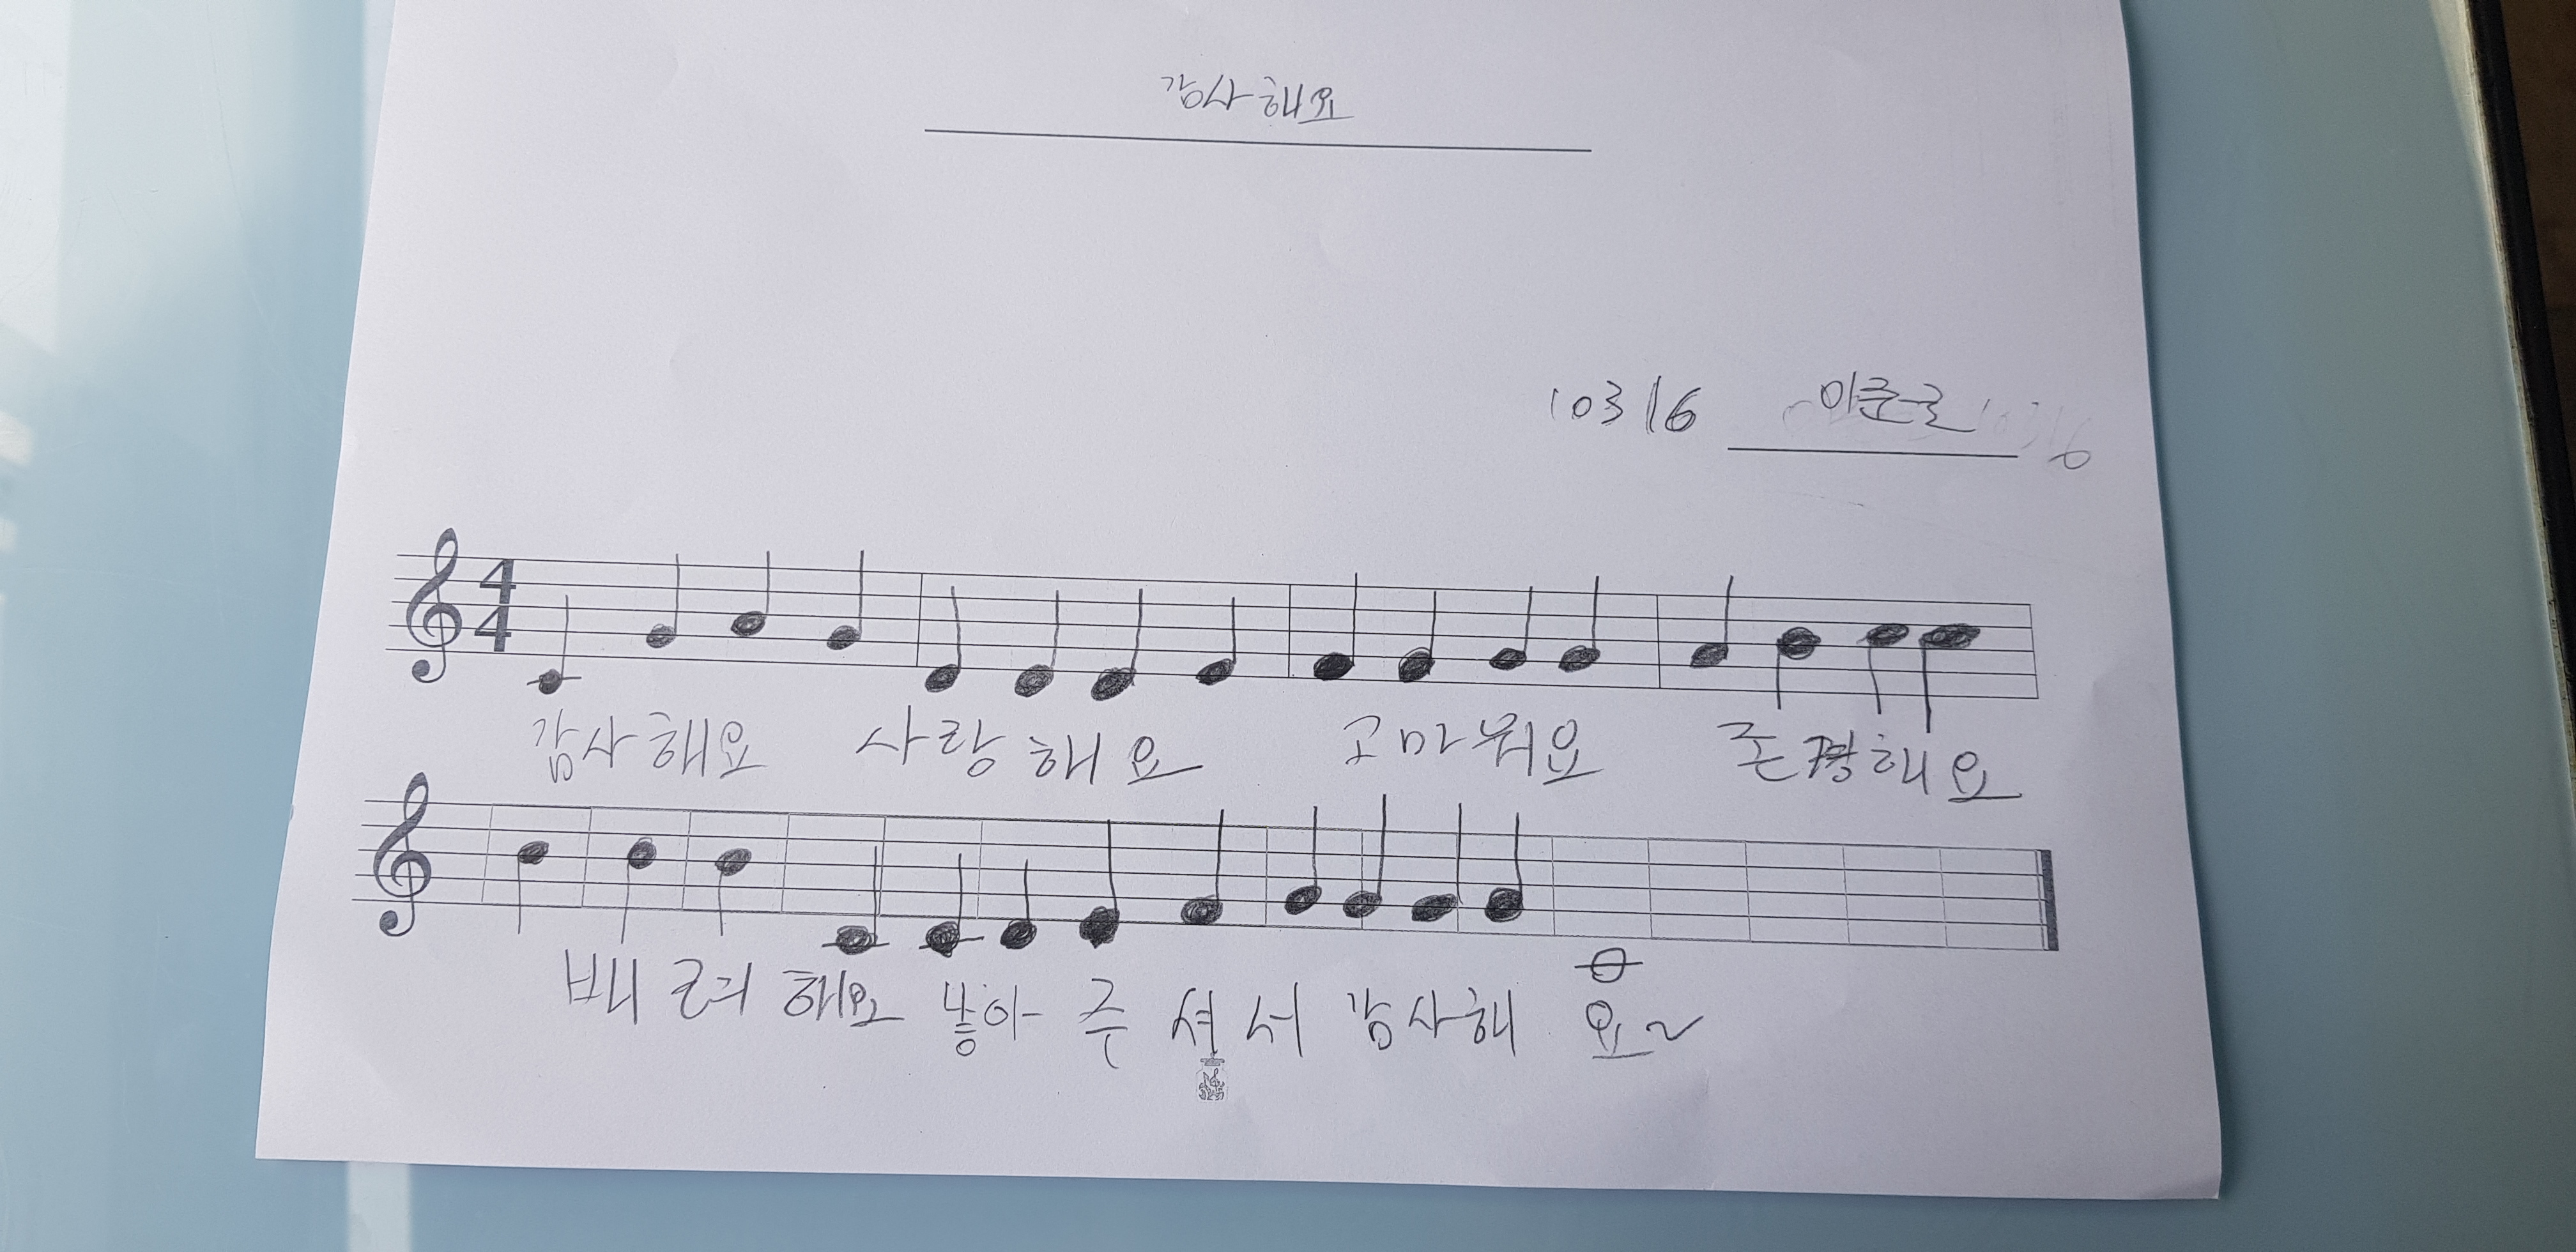 감사해요
10316 이준로 10316
4
4
감사해요 사랑해요 고마워요 존경해요
배려해요 낳아 주셔서 감사해요~